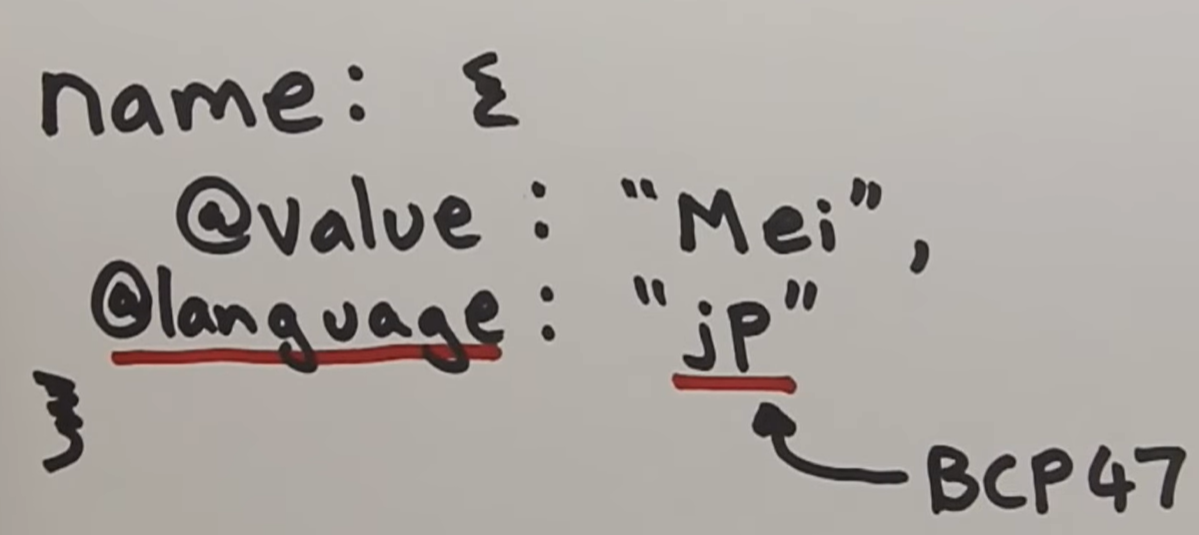 name: {
@value : "Mei",
@language : "jp"
}
BCP47